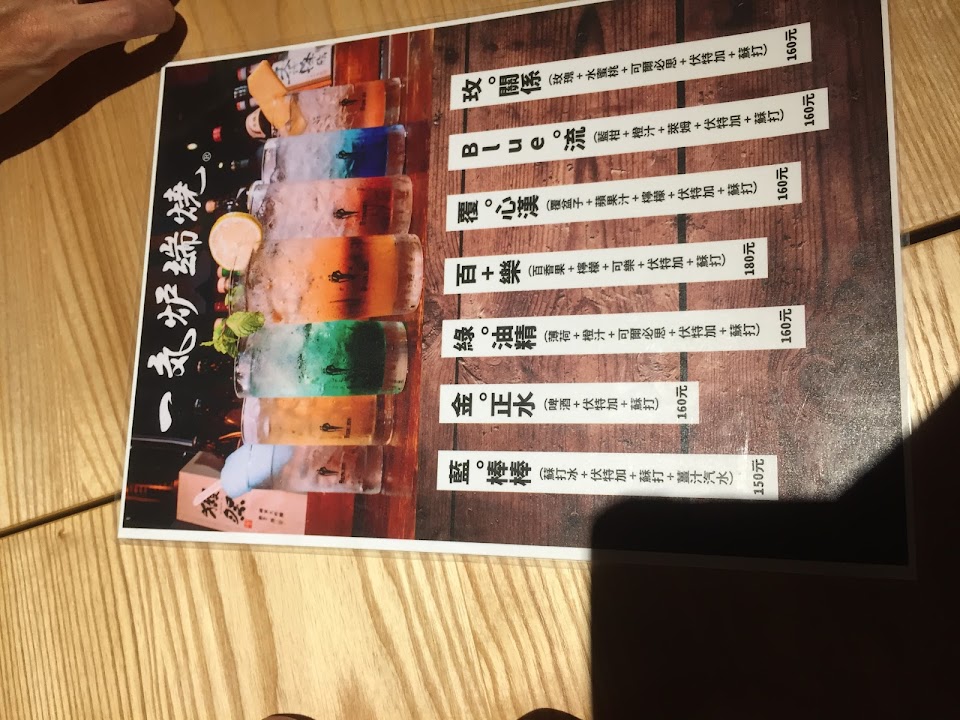 一氣炉端燒®
玫。關係
(玫瑰+水蜜桃+可爾必思+伏特加+蘇打)
160元
Blue。流
(藍柑+橙汁+萊姆+伏特加+蘇打)
160元
覆。心漢
(覆盆子+蘋果汁+檸檬+伏特加+蘇打)
160元
百+樂
(百香果+檸檬+可樂+伏特加+蘇打)
180元
綠。油精
(薄荷+橙汁+可爾必思+伏特加+蘇打)
160元
金。正水
(啤酒+伏特加+蘇打)
160元
藍。棒棒
(蘇打冰+伏特加+蘇打+薑汁汽水)
150元